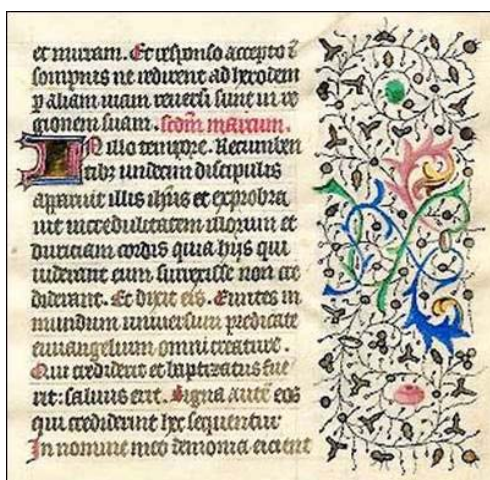 et mirram. Et responso accepto i
sompnis ne redirent ad herodem
p aliam uiam reuersi sunt in re
gionem suam. scdm marcum.
In illo tempore. Recumben
tibz undecim discipulis
apparuit illis ihus et exprobra
uit incredulitatem illorum et
duriciam cordis quia hijs qui
uiderant eum surrexisse non cre
diderant. Et dixit eis. Euntes in
mundum uniuersum predicate
euuangelium omni creature.
Qui crediderit et baptizatus fue
rit: saluus erit. Signa aute eos
qui crediderint hec sequentur
In nomine meo demonia eicient